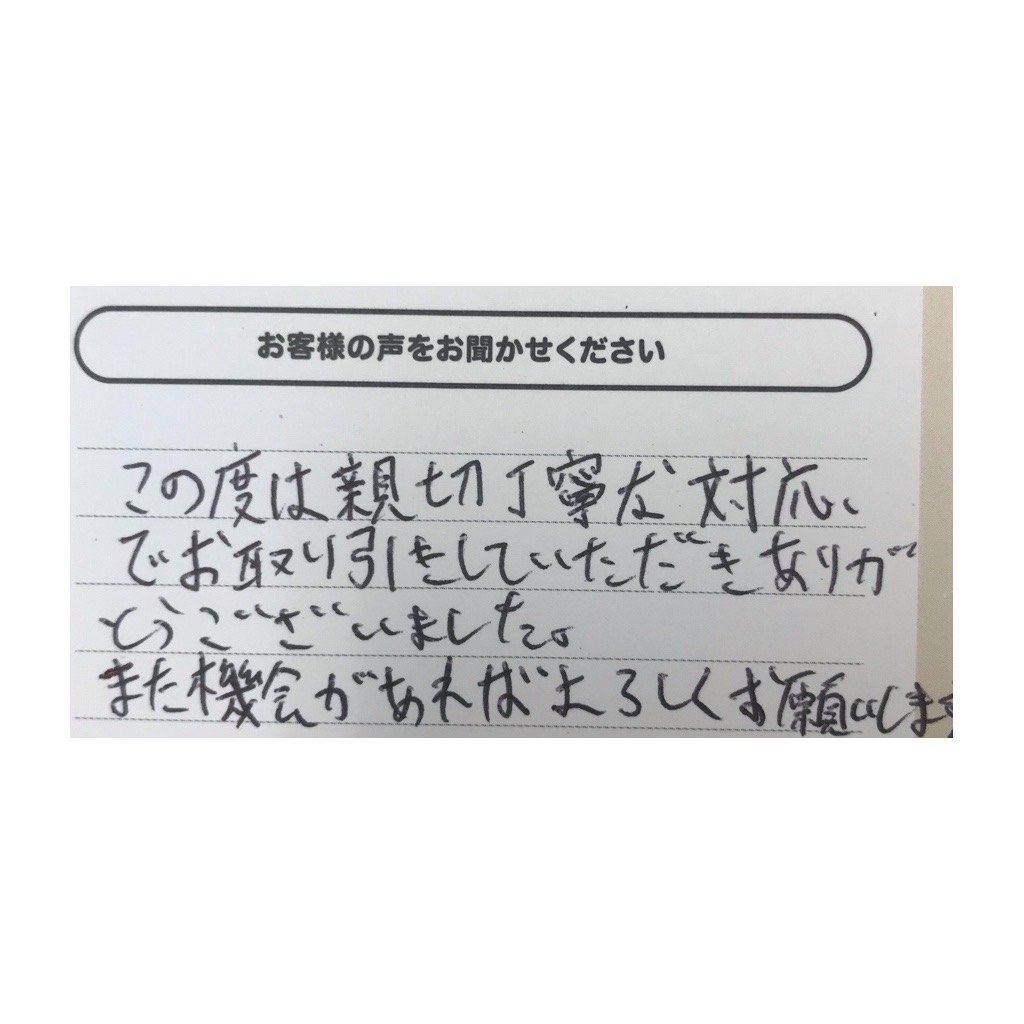 お客様の声をお聞かせください
この度は親切丁寧な対応、
でお取り引きをしていただきありが
とうございました。
また機会があればよろしくお願いします